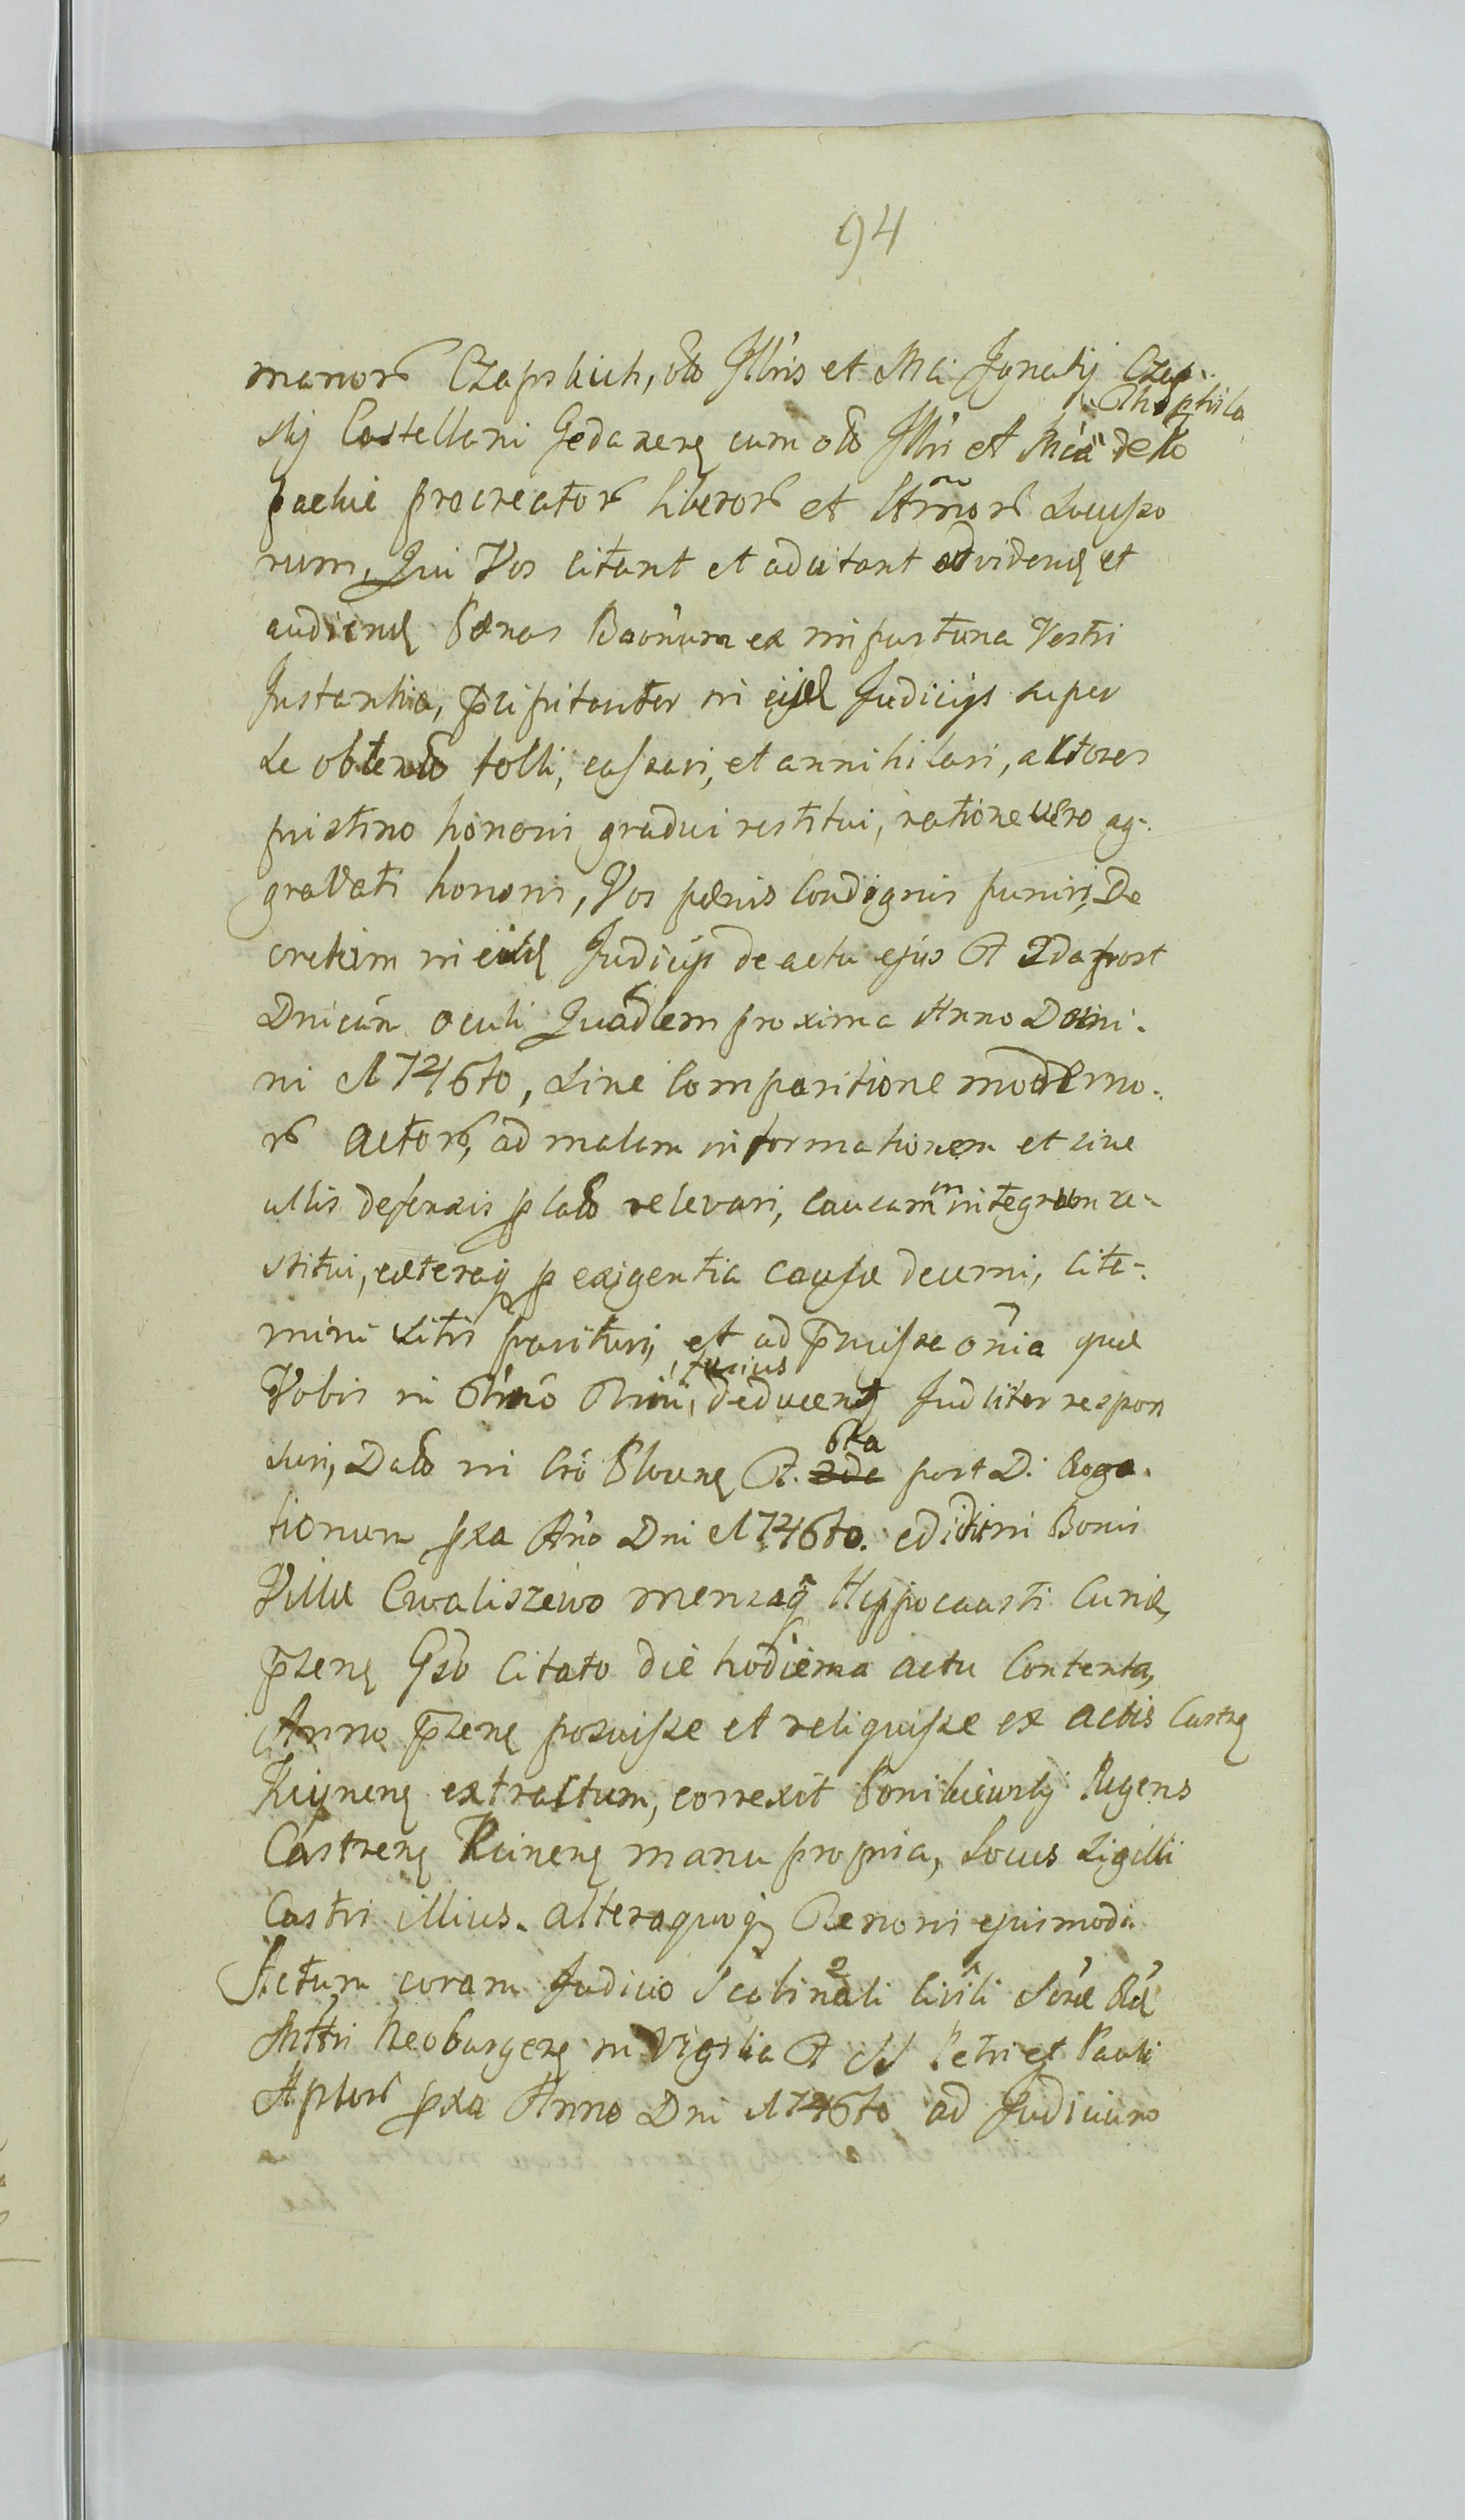 94
manorũ Czapskich, olo Jllris et Mci Jgnatij Czap-
Theophila
skij Castellani Gedanenę cum olo Jllri et Mca de Ko
packie procreatorũ liberorũ et Armorũ suorum
rum, Qui Vos citant et adcitant ad videndę et
audiendę Pœnas Baõnum ex importuna Vestri
Jnstantia, p̄cipitanter in eijsd Judicijs super
se obtento tolli, cassari, et annihilari, actores
pristino honoris gradui restitui, ratione vero ag-
gravati honoris, Vos pœnis Condignis puniri, De
cretum in eisdę Judicijs de actu ejus F. 2da post
Dnicam Oculi Quadlem proxima Anno Domi-
ni M746to, sine Comparitione moderno-
rũ Actorũ, ad malam informationem et sine
ullis defensis p lato relevari, Causam in integrum re-
stitui, cæteraq p exigentia Causæ decerni, Cita-
mini sitis parituri, et ad p̄missa om̃ia quæ
Vobis in Termo Termi, fusius deducenę Judliter respon
suri, Dato in Cro Slucnę F. 2da 6ta post D. Roga-
tionum pxa Año Dni M746to. editioni Bonis
Villæ Cwaliszewo mensaq Hyppocausti Curiæ,
p̄senę Gso Citato die hodierna actu Contenta,
Anno p̄senę posuisse et reliquisse ex Actis Castrę
Kcijnenę extractum, correxit Ponikiewskj Regens
Castrenę Kcinenę manu propria, Locus Sigilli
Castri illius. Alteraquoq Tenoris ejusmodi.
Actum coram Judicio Scabinali Civili Sõræ Rd
Mttis Neoburgenę in Vigilia F. SS Petri et Pauli
Aplorũ pxa Anno Dni M746to ad Judicium